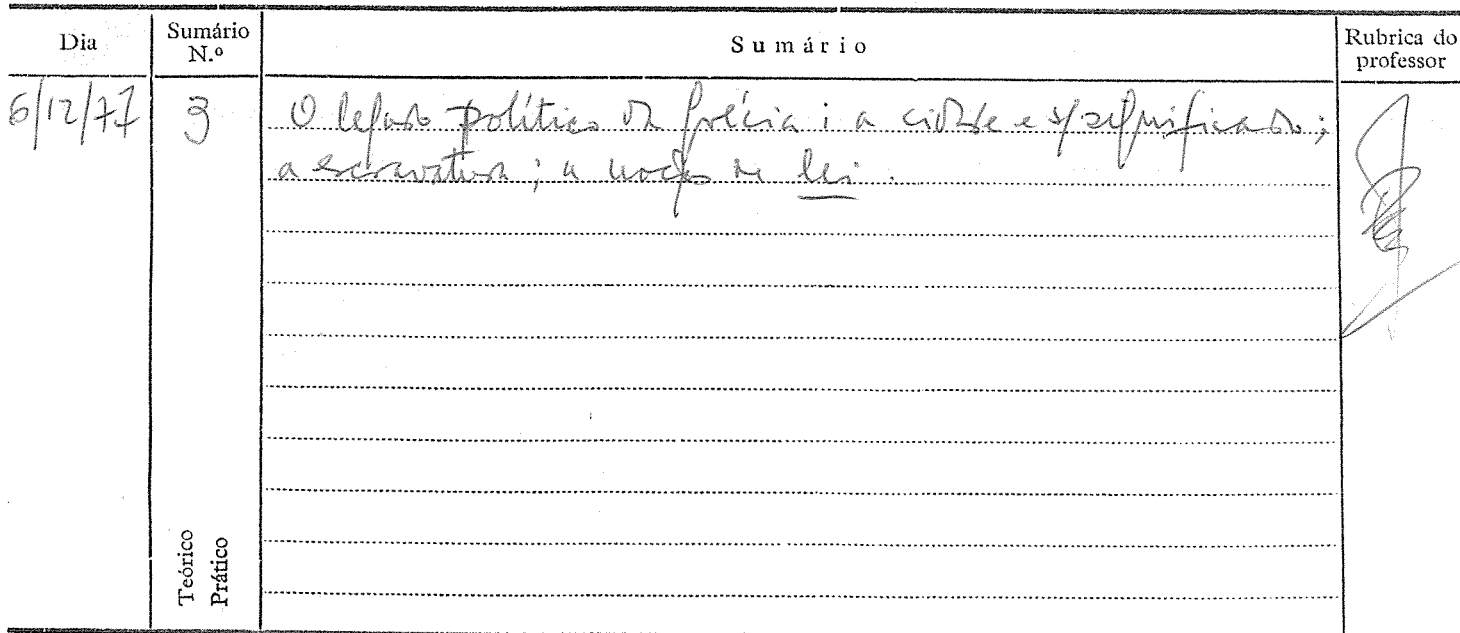 Dia
Sumário N.º
Sumário
Rubrica do professor
6/12/77
3
O legado político da Grécia: a cidade e s/ significado;
a escravatura; a noção de lei.
Teórico
Prático